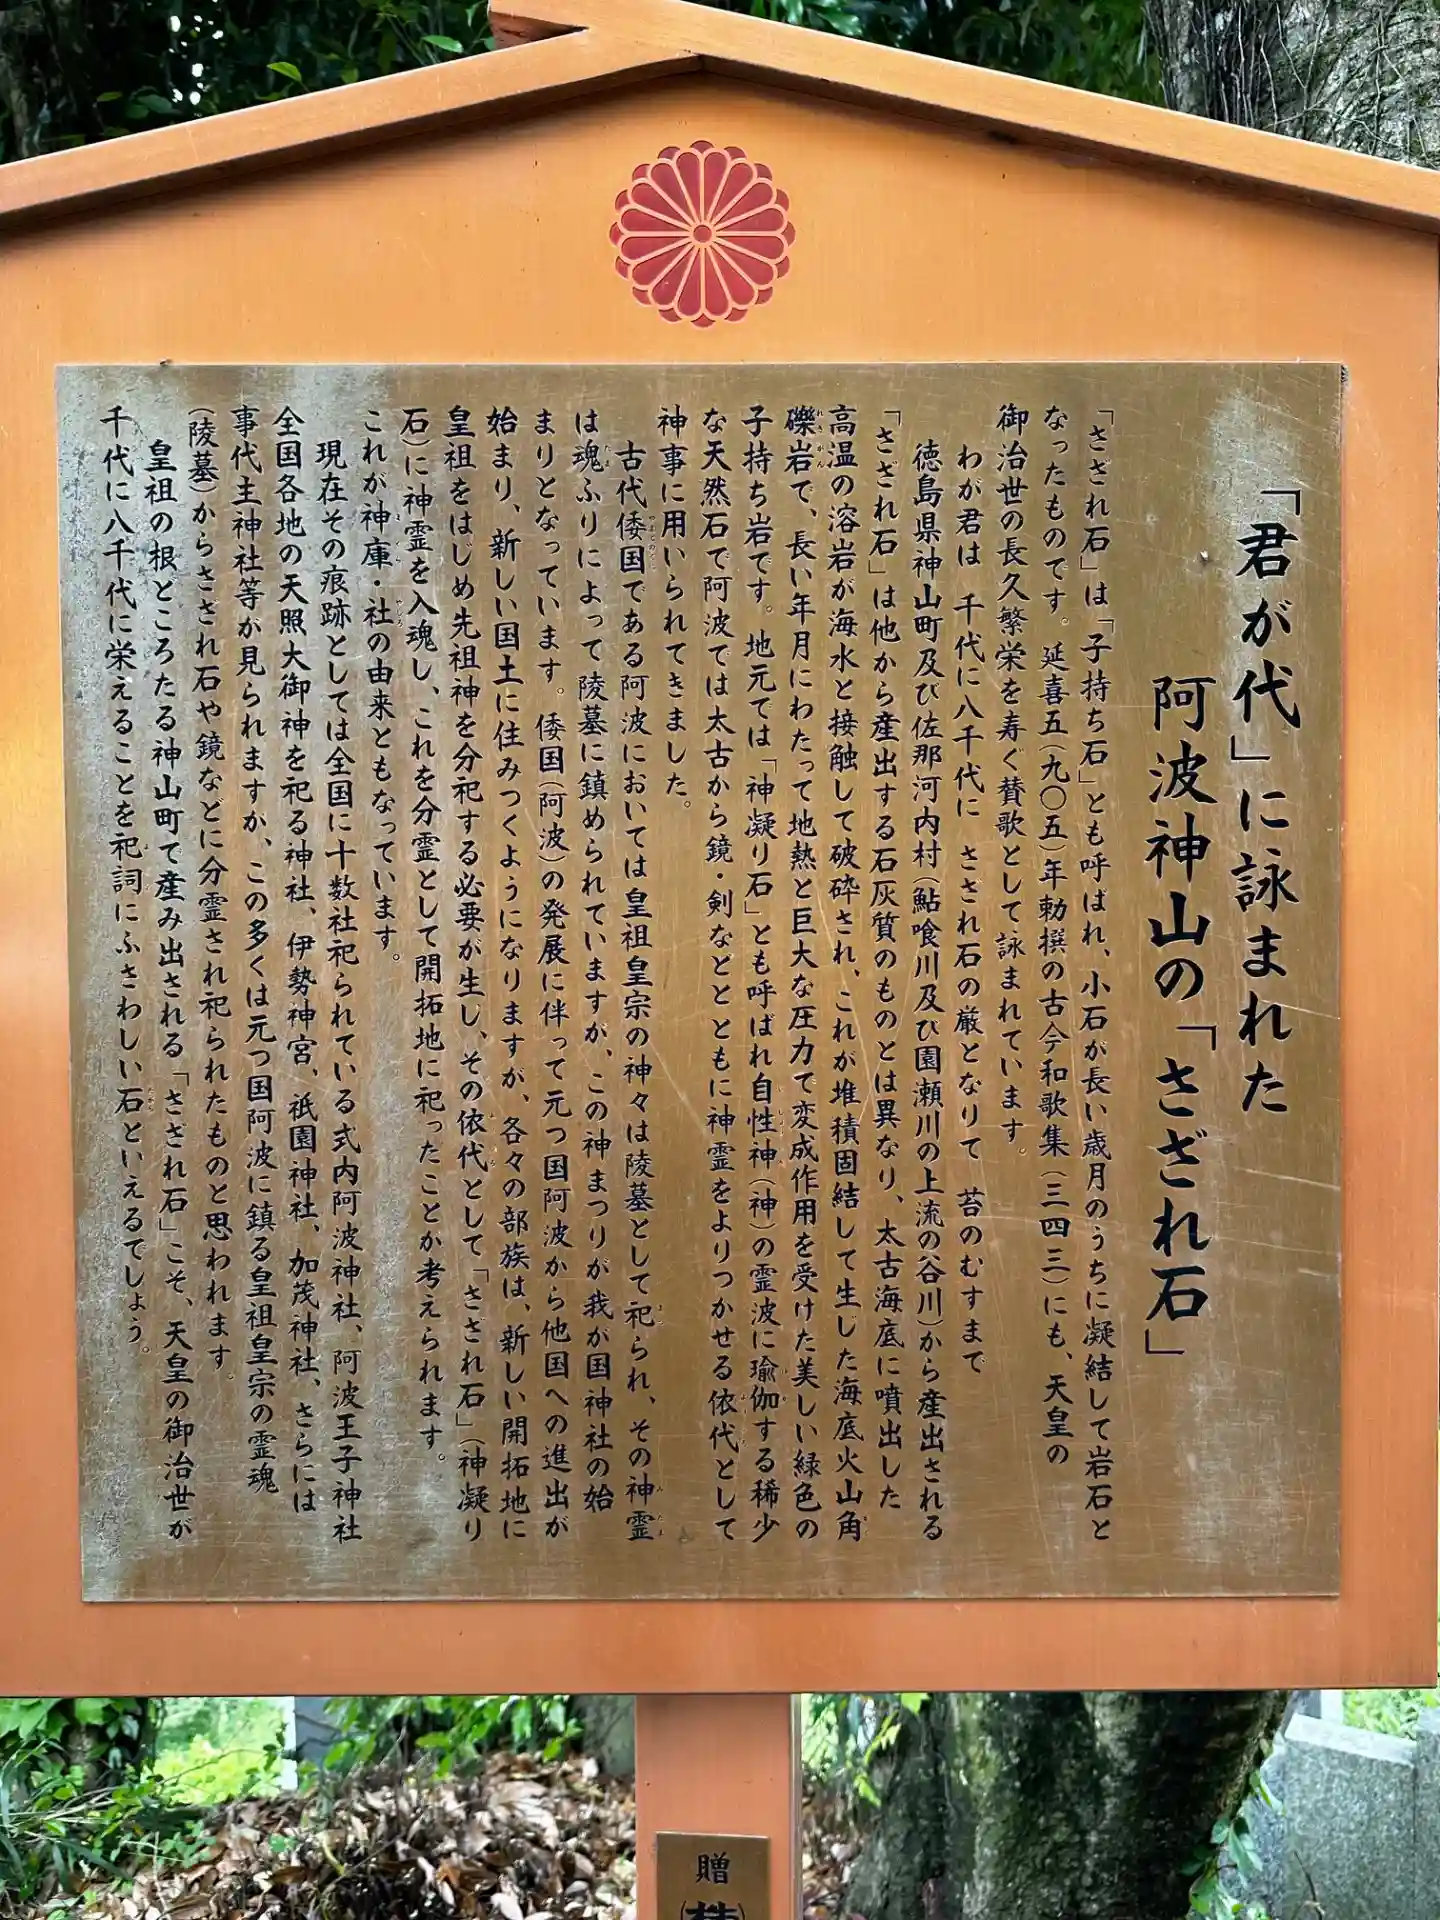 「君が代」に詠まれた
阿波神山の「さざれ石」
「さざれ石」は「子持ち石」とも呼ばれ、小石が長い歳月のうちに凝結して岩石と
なったものです。延喜五(九〇五)年勅撰の古今和歌集(三四三)にも、天皇の
御治世の長久繁栄を寿ぐ賛歌として詠まれています。
わが君は 千代に八千代に さざれ石の巌となりて 苔のむすまで
徳島県神山町及び佐那河内村(鮎喰川及び園瀬川の上流の谷川)から産出される
「さざれ石」は他から産出する石灰質のものとは異なり、太古海底に噴出した
高温の溶岩が海水と接触して破砕され、これが堆積固結して生じた海底火山角
礫岩で、長い年月にわたって地熱と巨大な圧力で変成作用を受けた美しい緑色の
子持ち岩です。地元では「神凝り石」とも呼ばれ自性神(神)の霊波に瑜伽する稀少
な天然石で阿波では太古から鏡・剣などとともに神霊をよりつかせる依代として
神事に用いられてきました。
古代倭国である阿波においては皇祖皇宗の神々は陵墓として祀られ、その神霊
は魂ふりによって陵墓に鎮められていますが、この神まつりが我が国神社の始
まりとなっています。倭国(阿波)の発展に伴って元つ国阿波から他国への進出が
始まり、新しい国土に住みつくようになりますが、各々の部族は、新しい開拓地に
皇祖をはじめ先祖神を分祀する必要が生し、その依代として「さざれ石」(神凝り
石)に神霊を入魂し、これを分霊として開拓地に祀ったことか考えられます。
これが神庫・社の由来ともなっています。
現在その痕跡としては全国に十数社祀られている式内阿波神社、阿波王子神社
全国各地の天照大御神を祀る神社、伊勢神宮、祇園神社、加茂神社、さらには
事代主神社等が見られますか、この多くは元つ国阿波に鎮る皇祖皇宗の霊魂
(陵墓)からさざれ石や鏡などに分霊され祀られたものと思われます。
皇祖の根ところたる神山町て産み出される「さざれ石」こそ、天皇の御治世が
千代に八千代に栄えることを祀詞にふさわしい石といえるでしょう。
贈